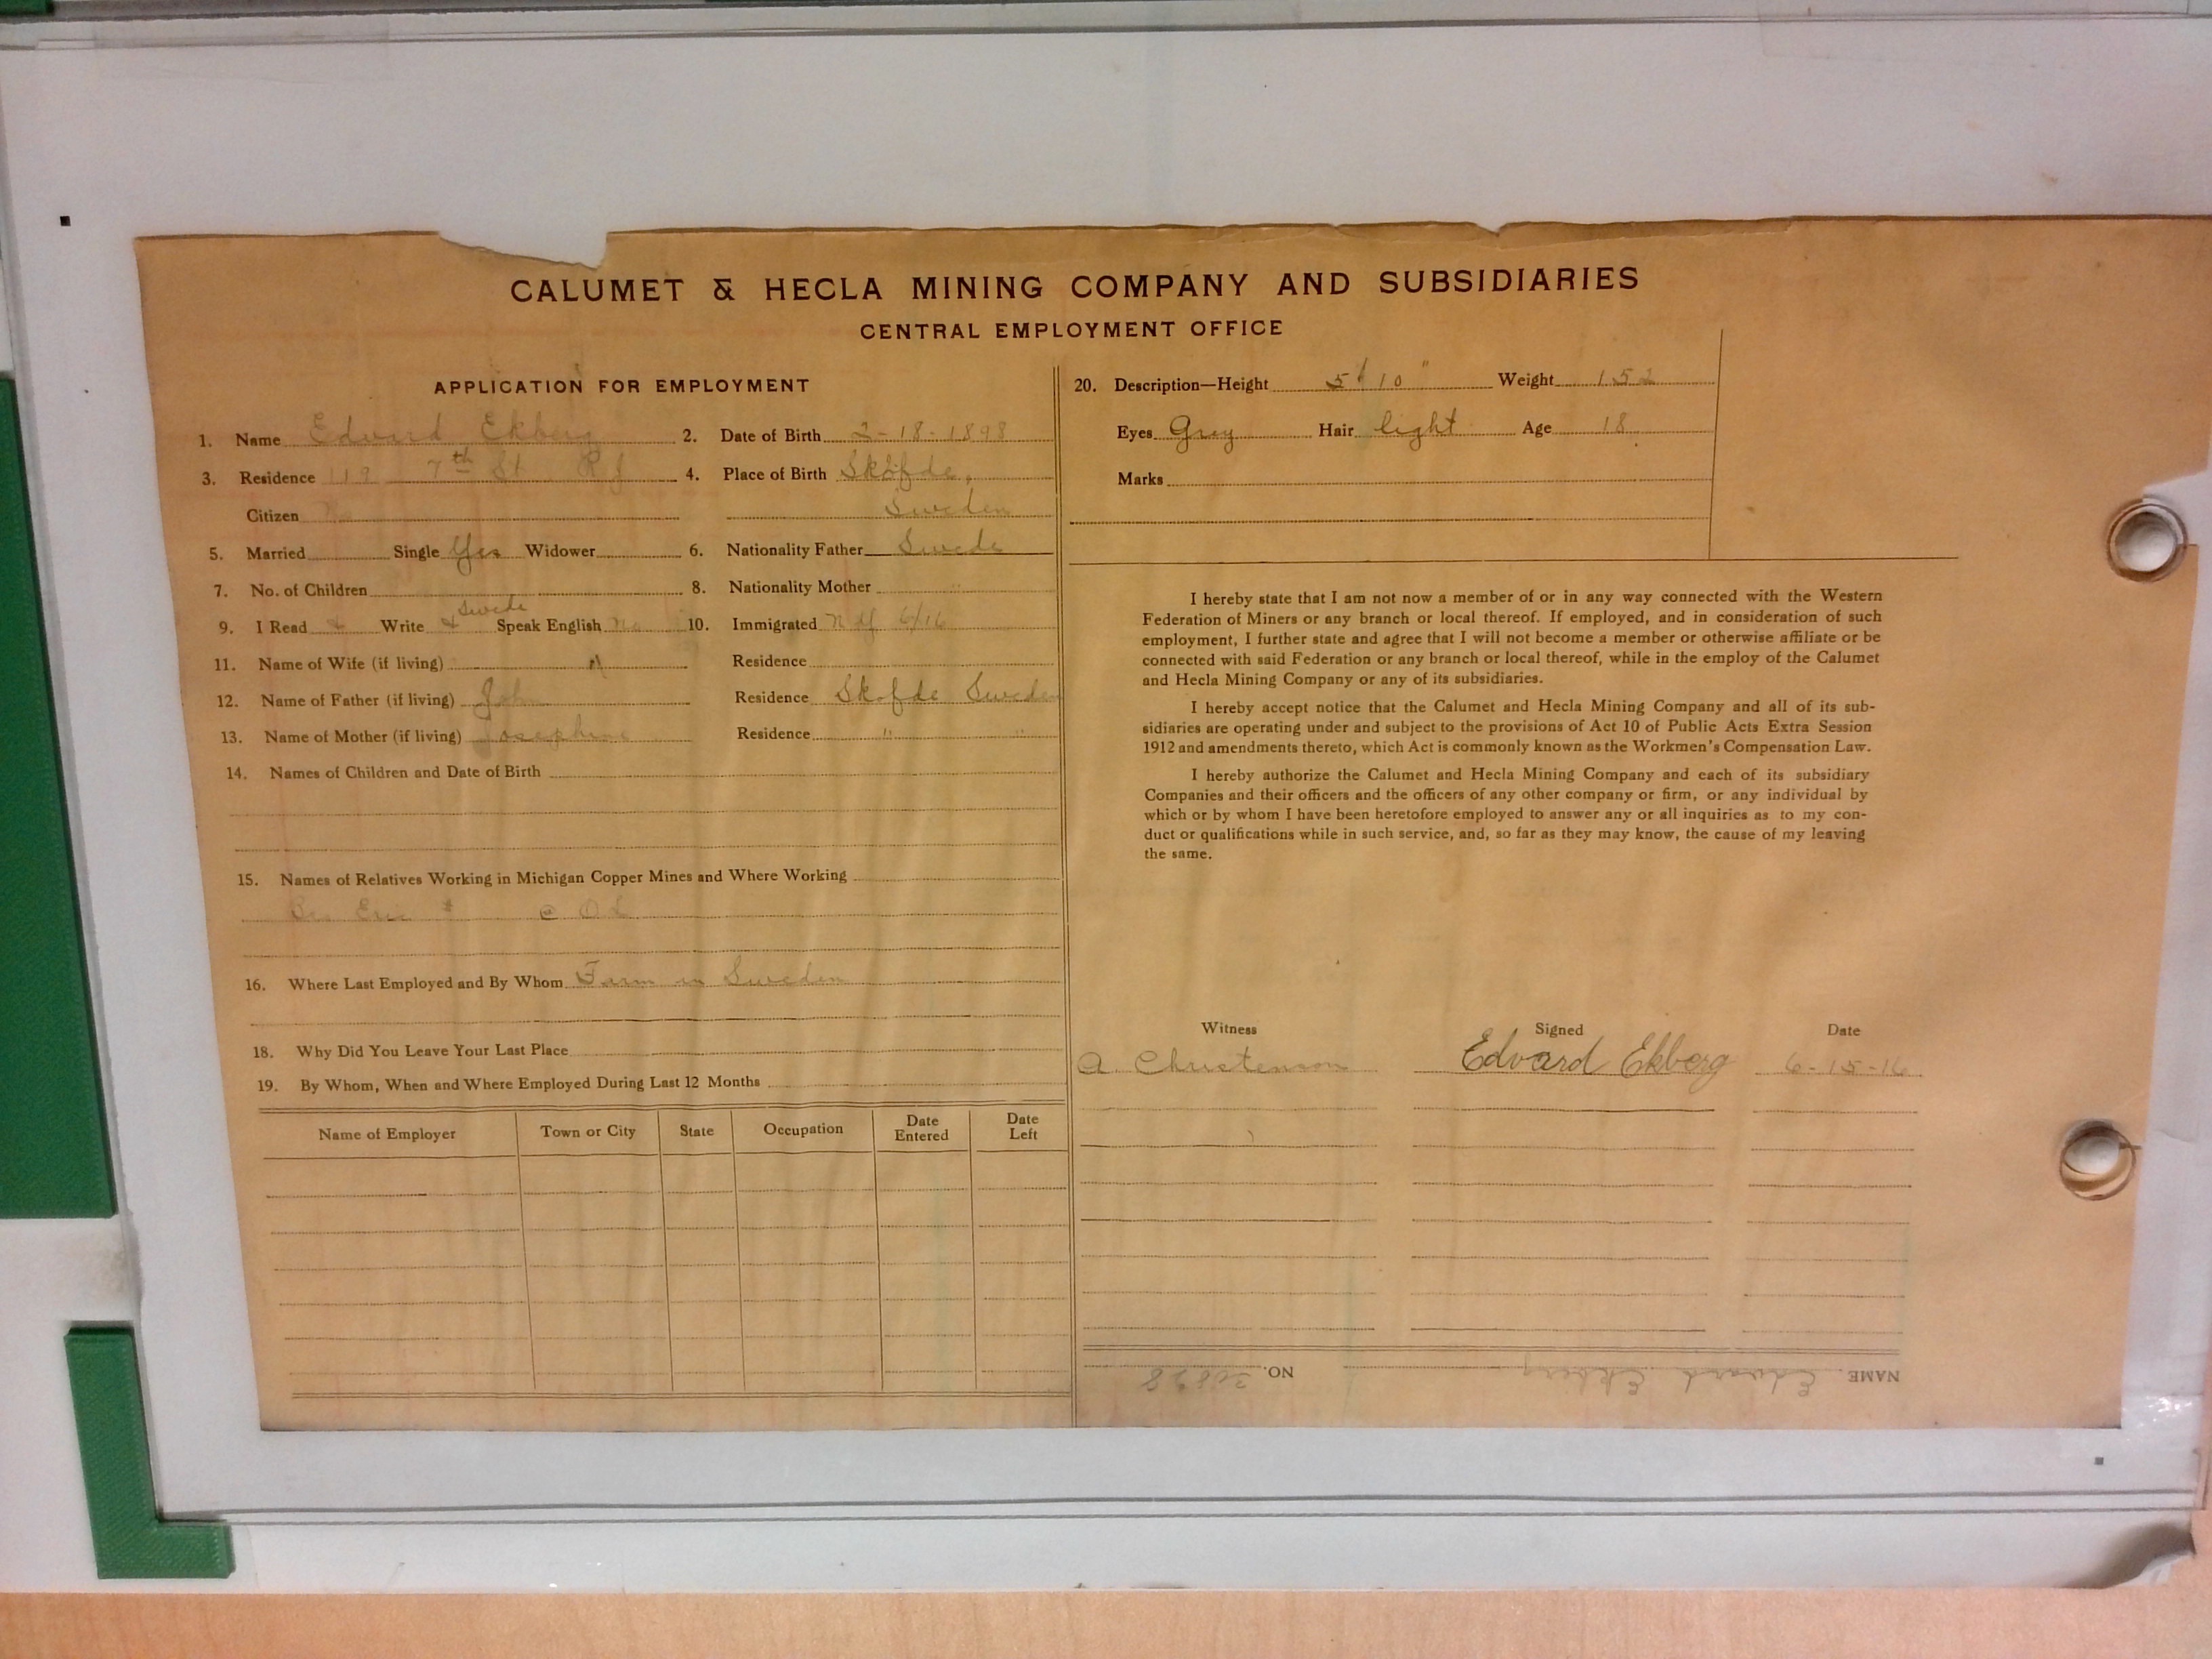 CALUMET & HECLA MINING COMPANY AND SUBSIDIARIES
CENTRAL EMPLOYMENT OFFICE
APPLICATION FOR EMPLOYMENT
1. Name Edvard Ekberg 2. Date of Birth 2-18-1898
3. Residence 119 7th St R J 4. Place of Birth Skofde,
Citizen No Sweden
5. Married Single Yes Widower 6. Nationality Father Swede
7. No. of Children 8. Nationality Mother "
Swede
9. I Read & Write & Speak English No 10. Immigrated 6/16
11. Name of Wife (if living) Residence
12. Name of Father (if living) John Residence Skofde Sweden
13. Name of Mother (if living) Josephine Residence " "
14. Names of Children and Date of Birth
15. Names of Relatives Working in Michigan Copper Mines and Where Working
Bro Eric # @ O L
16. Where Last Employed and By Whom Farm in Sweden
18. Why Did You Leave Your Last Place
19. By Whom, When and Where Employed During Last 12 Months
Name of Employer Town or City State Occupation Date Entered Date Left
20. Description—Height 5' 10" Weight 152
Eyes Grey Hair light Age 18
Marks
I hereby state that I am not now a member of or in any way connected with the Western
Federation of Miners or any branch or local thereof. If employed, and in consideration of such
employment, I further state and agree that I will not become a member or otherwise affiliate or be
connected with said Federation or any branch or local thereof, while in the employ of the Calumet
and Hecla Mining Company or any of its subsidiaries.
I hereby accept notice that the Calumet and Hecla Mining Company and all of its sub-
sidiaries are operating under and subject to the provisions of Act 10 of Public Acts Extra Session
1912 and amendments thereto, which Act is commonly known as the Workmen's Compensation Law.
I hereby authorize the Calumet and Hecla Mining Company and each of its subsidiary
Companies and their officers and the officers of any other company or firm, or any individual by
which or by whom I have been heretofore employed to answer any or all inquiries as to my con-
duct or qualifications while in such service, and, so far as they may know, the cause of my leaving
the same.
Witness Signed Date
A. Christenson Edvard Ekberg 6-15-16
NAME Edvard Ekberg NO.